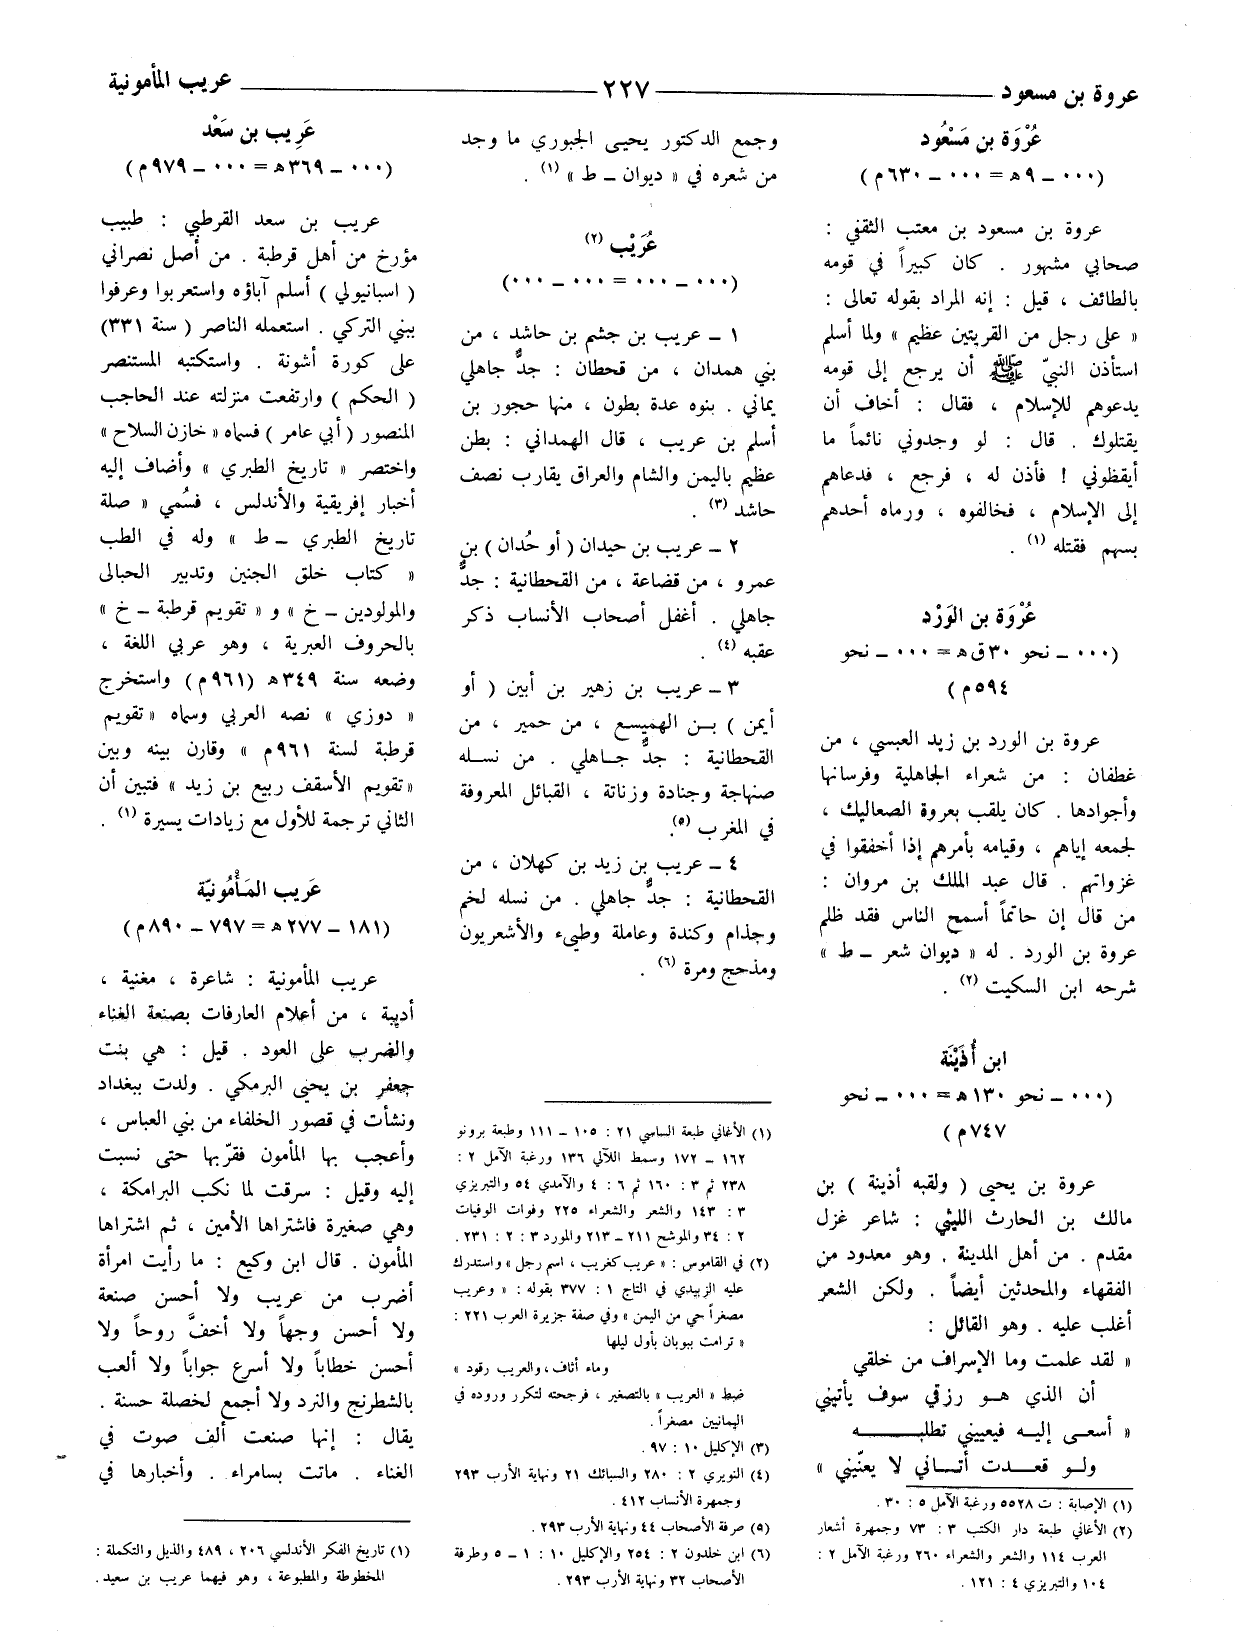 عروة بن مسعود ــــــ ٢٢٧ ــــــ عريب المأمونية
عُرْوَة بن مَسْعُود
(٠٠٠ ــ ٩هـ = ٠٠٠ ــ ٦٣٠م)
عروة بن مسعود بن معتب الثقفي :
صحابي مشهور . كان كبيراً في قومه
بالطائف ، قيل : إنه المراد بقوله تعالى :
« على رجل من القريتين عظيم » ولما أسلم
استأذن النبيّ ﷺ أن يرجع إلى قومه
يدعوهم للإسلام ، فقال : أخاف أن
يقتلوك . قال : لو وجدوني نائماً ما
أيقظوني ! فأذن له ، فرجع ، فدعاهم
إلى الإسلام ، فخالفوه ، ورماه أحدهم
بسهم فقتله (١) .
عُرْوَة بن الوَرْد
(٠٠٠ ــ نحو ٣٠ق هـ = ٠٠٠ ــ نحو
٥٩٤م)
عروة بن الورد بن زيد العبسي ، من
غطفان : من شعراء الجاهلية وفرسانها
وأجوادها . كان يلقب بعروة الصعاليك ،
لجمعه إياهم ، وقيامه بأمرهم إذا أخفقوا في
غزواتهم . قال عبد الملك بن مروان :
من قال إن حاتماً أسمح الناس فقد ظلم
عروة بن الورد . له « ديوان شعر ــ ط »
شرحه ابن السكيت (٢) .
ابن أُذَيْنَة
(٠٠٠ ــ نحو ١٣٠هـ = ٠٠٠ ــ نحو
٧٤٧م)
عروة بن يحيى ( ولقبه أذينة ) بن
مالك بن الحارث الليثي : شاعر غزل
مقدم . من أهل المدينة . وهو معدود من
الفقهاء والمحدثين أيضاً . ولكن الشعر
أغلب عليه . وهو القائل :
« لقد علمت وما الإسراف من خلقي
أن الذي هـو رزقي سوف يأتيني
« أسعـى إليـه فيعييني تطلبـــه
ولـو قعـدت أتـاني لا يعنّيني »
(١) الإصابة : ت ٥٥٢٨ ورغبة الآمل ٥ : ٣٠ .
(٢) الأغاني طبعة دار الكتب ٣ : ٧٣ وجمهرة أشعار
العرب ١١٤ والشعر والشعراء ٢٦٠ ورغبة الآمل ٢ :
١٠٤ والتبريزي ٤ : ١٢١ .
وجمع الدكتور يحيى الجبوري ما وجد
من شعره في « ديوان ــ ط » (١) .
عُرَيْب (٢)
(٠٠٠ ــ ٠٠٠ = ٠٠٠ ــ ٠٠٠)
١ ــ عريب بن جشم بن حاشد ، من
بني همدان ، من قحطان : جدٌّ جاهلي
يماني . بنوه عدة بطون ، منها حجور بن
أسلم بن عريب ، قال الهمداني : بطن
عظيم باليمن والشام والعراق يقارب نصف
حاشد (٣) .
٢ ــ عريب بن حيدان ( أو حُدان ) بن
عمرو ، من قضاعة ، من القحطانية : جدٌّ
جاهلي . أغفل أصحاب الأنساب ذكر
عقبه (٤) .
٣ ــ عريب بن زهير بن أبين ( أو
أيمن ) بـن الهميسع ، من حمير ، من
القحطانية : جدٌّ جـاهلي . من نسـله
صنهاجة وجنادة وزناتة ، القبائل المعروفة
في المغرب (٥).
٤ ــ عريب بن زيد بن كهلان ، من
القحطانية : جدٌّ جاهلي . من نسله لخم
وجذام وكندة وعاملة وطيء والأشعريون
ومذحج ومرة (٦) .
(١) الأغاني طبعة الساسي ٢١ : ١٠٥ ــ ١١١ وطبعة برونو
١٦٢ ــ ١٧٢ وسمط اللآلي ١٣٦ ورغبة الآمل ٢ :
٢٣٨ ثم ٣ : ١٦٠ ثم ٦ : ٤ والآمدي ٥٤ والتبريزي
٣ : ١٤٣ والشعر والشعراء ٢٢٥ وفوات الوفيات
٢ : ٣٤ والموشح ٢١١ ــ ٢١٣ والمورد ٣ : ٢ : ٢٣١ .
(٢) في القاموس : « عريب كغريب ، اسم رجل » واستدرك
عليه الزبيدي في التاج ١ : ٣٧٧ بقوله : « وعريب
مصغراً حي من اليمن » وفي صفة جزيرة العرب ٢٢١ :
« ترامت ببوبان بأول ليلها
وماء أثاف ، والعريب رقود »
ضبط « العريب » بالتصغير ، فرجحته لتكرر وروده في
اليمانيين مصغراً .
(٣) الإكليل ١٠ : ٩٧ .
(٤) النويري ٢ : ٢٨٠ والسبائك ٢١ ونهاية الأرب ٢٩٣
وجمهرة الأنساب ٤١٢ .
(٥) صرفة الأصحاب ٤٤ ونهاية الأرب ٢٩٣ .
(٦) ابن خلدون ٢ : ٢٥٤ والإكليل ١٠ : ١ ــ ٥ وطرفة
الأصحاب ٣٢ ونهاية الأرب ٢٩٣ .
عَرِيب بن سَعْد
(٠٠٠ ــ ٣٦٩هـ = ٠٠٠ ــ ٩٧٩م)
عريب بن سعد القرطبي : طبيب
مؤرخ من أهل قرطبة . من أصل نصراني
( اسبانيولي ) أسلم آباؤه واستعربوا وعرفوا
ببني التركي . استعمله الناصر ( سنة ٣٣١)
على كورة أشونة . واستكتبه المستنصر
( الحكم ) وارتفعت منزلته عند الحاجب
المنصور ( أبي عامر ) فسماه « خازن السلاح »
واختصر « تاريخ الطبري » وأضاف إليه
أخبار إفريقية والأندلس ، فسُمي « صلة
تاريخ الطبري ــ ط » وله في الطب
« كتاب خلق الجنين وتدبير الحبالى
والمولودين ــ خ » و « تقويم قرطبة ــ خ »
بالحروف العبرية ، وهو عربي اللغة ،
وضعه سنة ٣٤٩هـ (٩٦١م) واستخرج
« دوزي » نصه العربي وسماه « تقويم
قرطبة لسنة ٩٦١م » وقارن بينه وبين
« تقويم الأسقف ربيع بن زيد » فتبين أن
الثاني ترجمة للأول مع زيادات يسيرة (١) .
عَريب المَأْمُونيّة
(١٨١ ــ ٢٧٧هـ = ٧٩٧ ــ ٨٩٠م)
عريب المأمونية : شاعرة ، مغنية ،
أديبة ، من أعلام العارفات بصنعة الغناء
والضرب على العود . قيل : هي بنت
جعفر بن يحيى البرمكي . ولدت ببغداد
ونشأت في قصور الخلفاء من بني العباس ،
وأعجب بها المأمون فقرّبها حتى نسبت
إليه وقيل : سرقت لما نكب البرامكة ،
وهي صغيرة فاشتراها الأمين ، ثم اشتراها
المأمون . قال ابن وكيع : ما رأيت امرأة
أضرب من عريب ولا أحسن صنعة
ولا أحسن وجهاً ولا أخفَّ روحاً ولا
أحسن خطاباً ولا أسرع جواباً ولا ألعب
بالشطرنج والنرد ولا أجمع لخصلة حسنة .
يقال : إنها صنعت ألف صوت في
الغناء . ماتت بسامراء . وأخبارها في
(١) تاريخ الفكر الأندلسي ٢٠٦ ، ٤٨٩ والذيل والتكملة :
المخطوطة والمطبوعة ، وهو فيهما عريب بن سعيد.